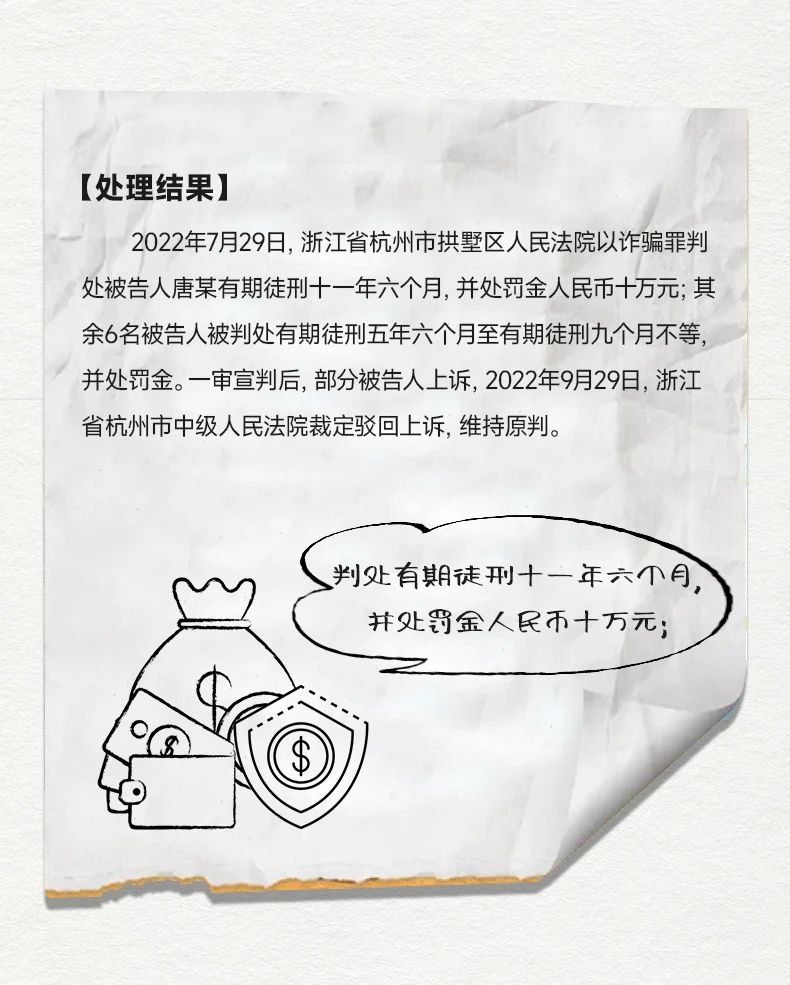 【处理结果】
2022年7月29日, 浙江省杭州市拱墅区人民法院以诈骗罪判
处被告人唐某有期徒刑十一年六个月, 并处罚金人民币十万元; 其
余6名被告人被判处有期徒刑五年六个月至有期徒刑九个月不等,
并处罚金。一审宣判后, 部分被告人上诉, 2022年9月29日, 浙江
省杭州市中级人民法院裁定驳回上诉, 维持原判。
判处有期徒刑十一年六个月,
并处罚金人民币十万元;
$
$
$